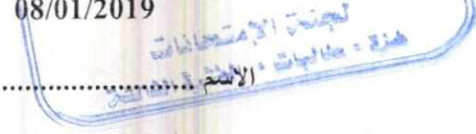 08/01/2019
لجنة الإمتحانات
غزة - طالبات -
الاسم ..............................